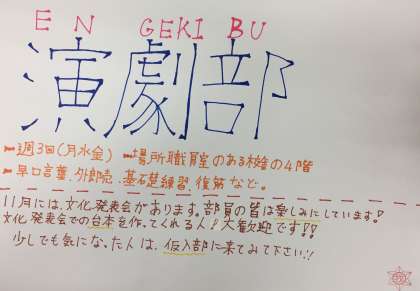 EN GEKI BU
演劇部
週3回(月水金) 場所職員室のある校舎の4階
早口言葉、外郎売、基礎練習、腹筋など。
11月には、文化発表会があります。部員の皆は楽しみにしています!
文化発表会での台本を作ってくれる人!大歓迎です!!
少しでも気になった人は、仮入部に来てみて下さい!!